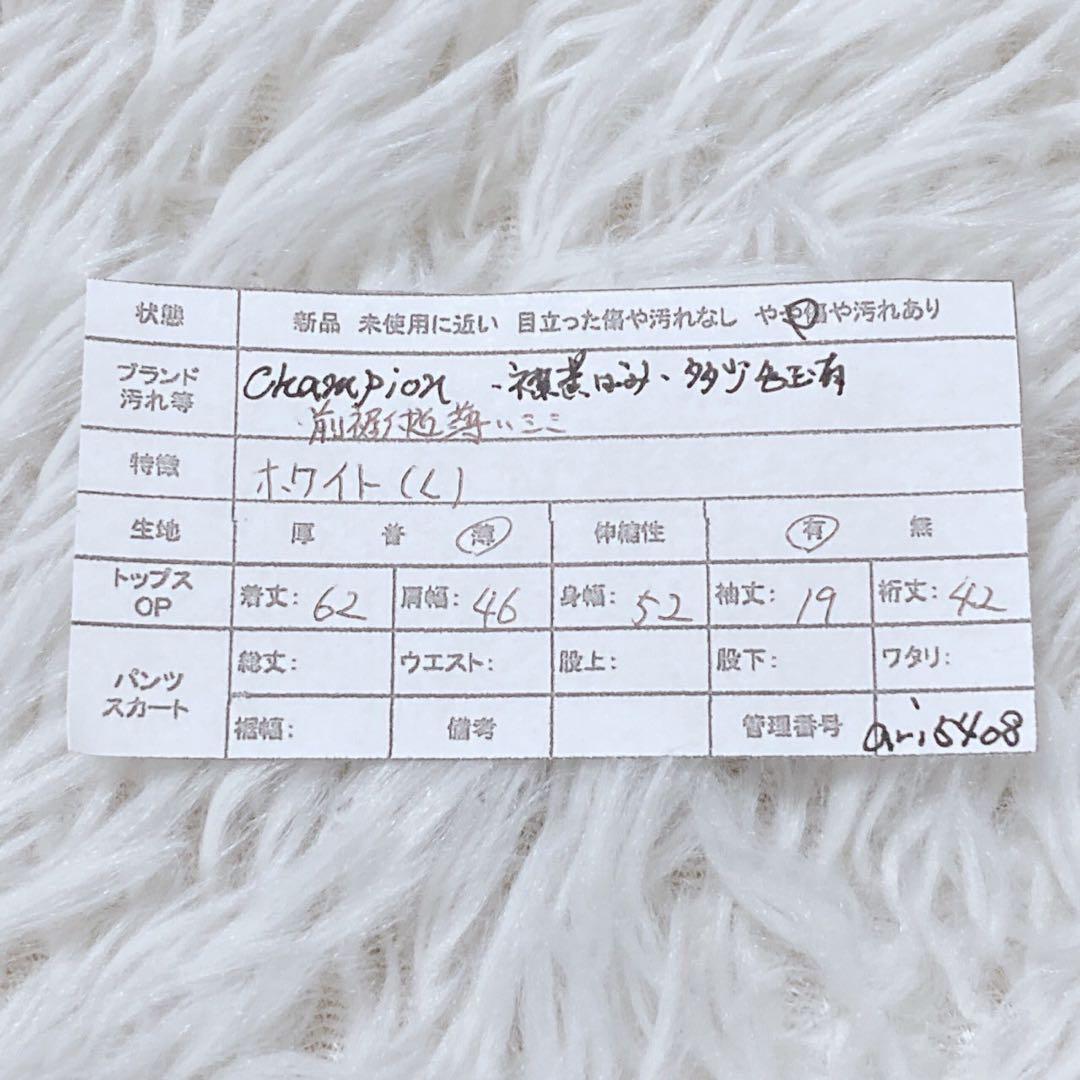 状態 新品 未使用に近い 目立った傷や汚れなし やや傷や汚れあり
ブランド 汚れ等 Champion ・襟黄ばみ・多少毛玉有
・前裾付近薄いシミ
特徴 ホワイト(L)
生地 厚 普 薄 伸縮性 有 無
トップス OP 着丈: 62 肩幅: 46 身幅: 52 袖丈: 19 裄丈: 42
パンツ スカート 総丈: ウエスト: 股上: 股下: ワタリ:
裾幅: 備考 管理番号 ari5408